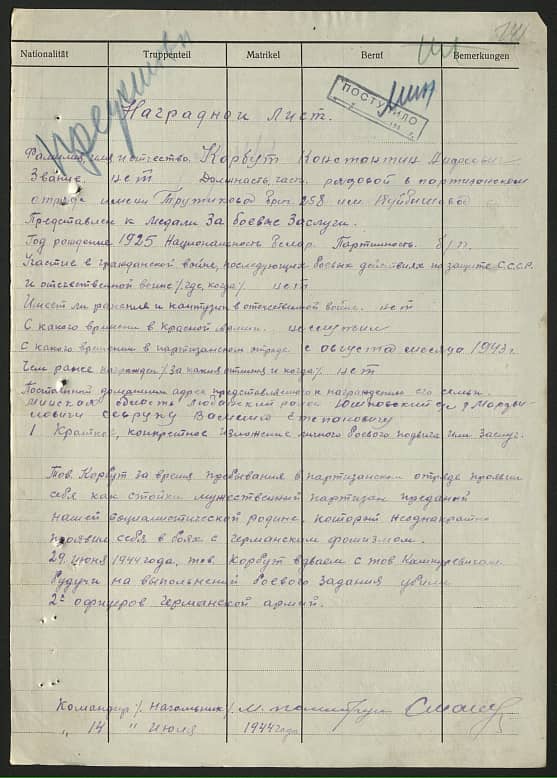 Nationalität Truppenteil Matrikel Beruf Bemerkungen
ПОСТУПИЛО
Наградной Лист.
Фамилия, имя и отчество Корбут Константин
Звание нет Должность, часть рядовой в партизанском
отряде имени бриг. 258 им. Куйбышева
Представлен к Медали За Боевые Заслуги.
Год рождение 1925 Национальность Белар. Партийность б/п.
Участие в гражданской войне, последующих боевых действиях по защите С.С.С.Р.
и отечественной войне /где, когда/ нет
Имеет ли ранения и контузии в отечественной войне. нет
С какого времени в красной армии.
С какого времени в партизанском отряде с августа месяца 1943 г.
Чем ранее награжден /за какие отличия и когда/ нет
Постоянный домашний адрес представляемого к награждению его семьи.
Минская область Любанский район
Степановичу
1 Краткое, конкретное изложение личного боевого подвига или заслуг.
Тов. Корбут за время пребывания в партизанском отряде проявил
себя как стойки мужественный партизан преданый
нашей социалистической родине, который неоднакратно
проявил себя в боях с германским фошизмом.
29 июня 1944 года, тов. Корбут вдваем с тов.
будучи на выполнений боевого задания убили
2х офицеров Германской армий.
Командир /Начальник/
„ 14 " Июля 1944 года